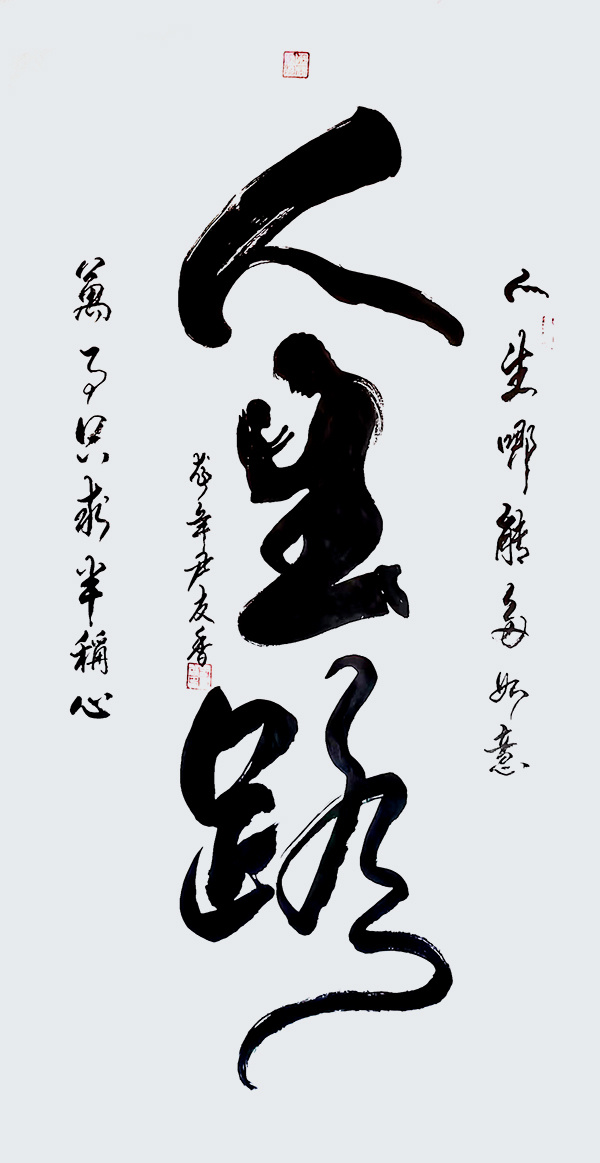 人生哪能多如意
人生路
年尹友香
萬事只求半稱心